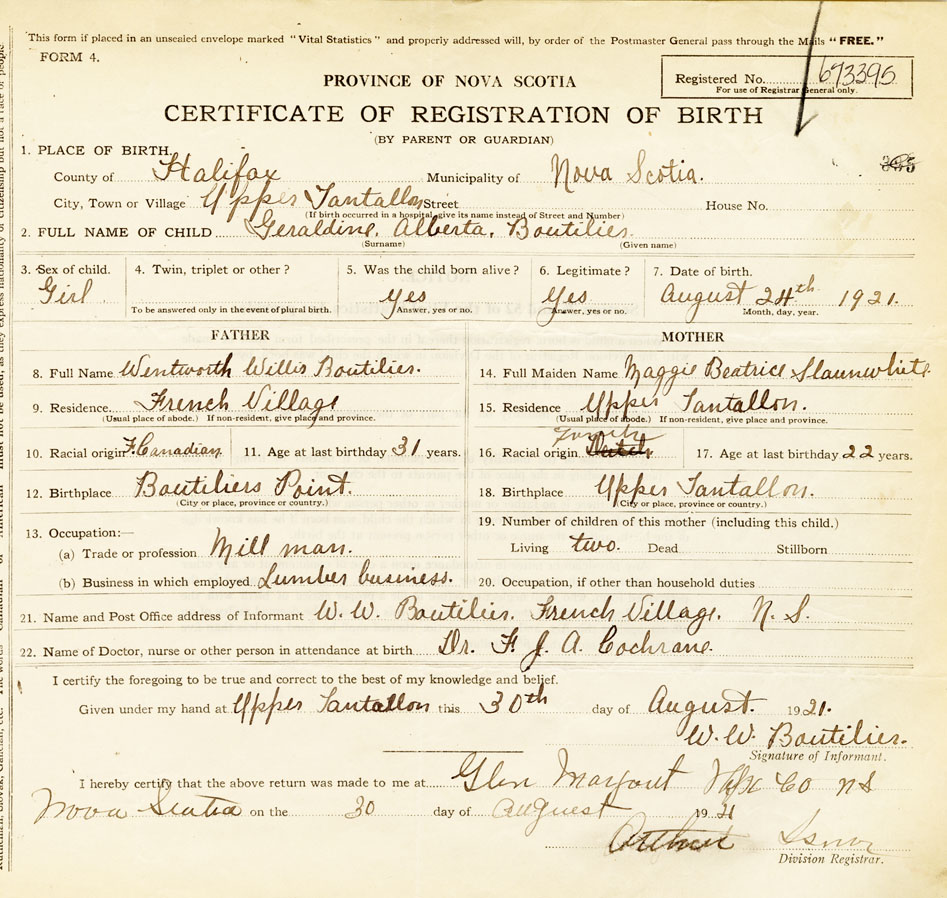 This form if placed in an unsealed envelope marked "Vital Statistics" and properly addressed will, by order of the Postmaster General pass through the Mails "FREE."
FORM 4.
Registered No. 693395
For use of Registrar General only.
PROVINCE OF NOVA SCOTIA
CERTIFICATE OF REGISTRATION OF BIRTH
(BY PARENT OR GUARDIAN)
1. PLACE OF BIRTH.
County of Halifax Municipality of Nova Scotia.
City, Town or Village Upper Tantallon Street House No.
(If birth occurred in a hospital, give its name instead of Street and Number)
2. FULL NAME OF CHILD Geraldine. Alberta. Boutilier.
(Surname) (Given name)
3. Sex of child. 4. Twin, triplet or other? 5. Was the child born alive? 6. Legitimate? 7. Date of birth.
Girl yes Yes August 24th 1921.
To be answered only in the event of plural birth. Answer, yes or no. Answer, yes or no. Month, day, year.
FATHER MOTHER
8. Full Name Wentworth Willis Boutilier. 14. Full Maiden Name Maggie Beatrice Slaunwhite
9. Residence French Village 15. Residence Upper Tantallon.
(Usual place of abode.) If non-resident, give place and province. (Usual place of abode.) If non-resident, give place and province.
10. Racial origin F. Canadian 11. Age at last birthday 31 years. 16. Racial origin Dutch 17. Age at last birthday 22 years.
12. Birthplace Boutiliers Point. 18. Birthplace Upper Tantallon.
(City or place, province or country.) (City or place, province or country.)
13. Occupation:— 19. Number of children of this mother (including this child.)
(a) Trade or profession Mill man. Living two. Dead Stillborn
(b) Business in which employed Lumber business. 20. Occupation, if other than household duties
21. Name and Post Office address of Informant W. W. Boutilier. French Village. N. S.
22. Name of Doctor, nurse or other person in attendance at birth. Dr. F. J. A. Cochrane.
I certify the foregoing to be true and correct to the best of my knowledge and belief.
Given under my hand at Upper Tantallon this 30th day of August. 1921.
W. W. Boutilier.
Signature of Informant.
I hereby certify that the above return was made to me at Glen Margaret Hfx Co NS
Nova Scotia on the 30 day of auguest 1921
Arthur
Division Registrar.